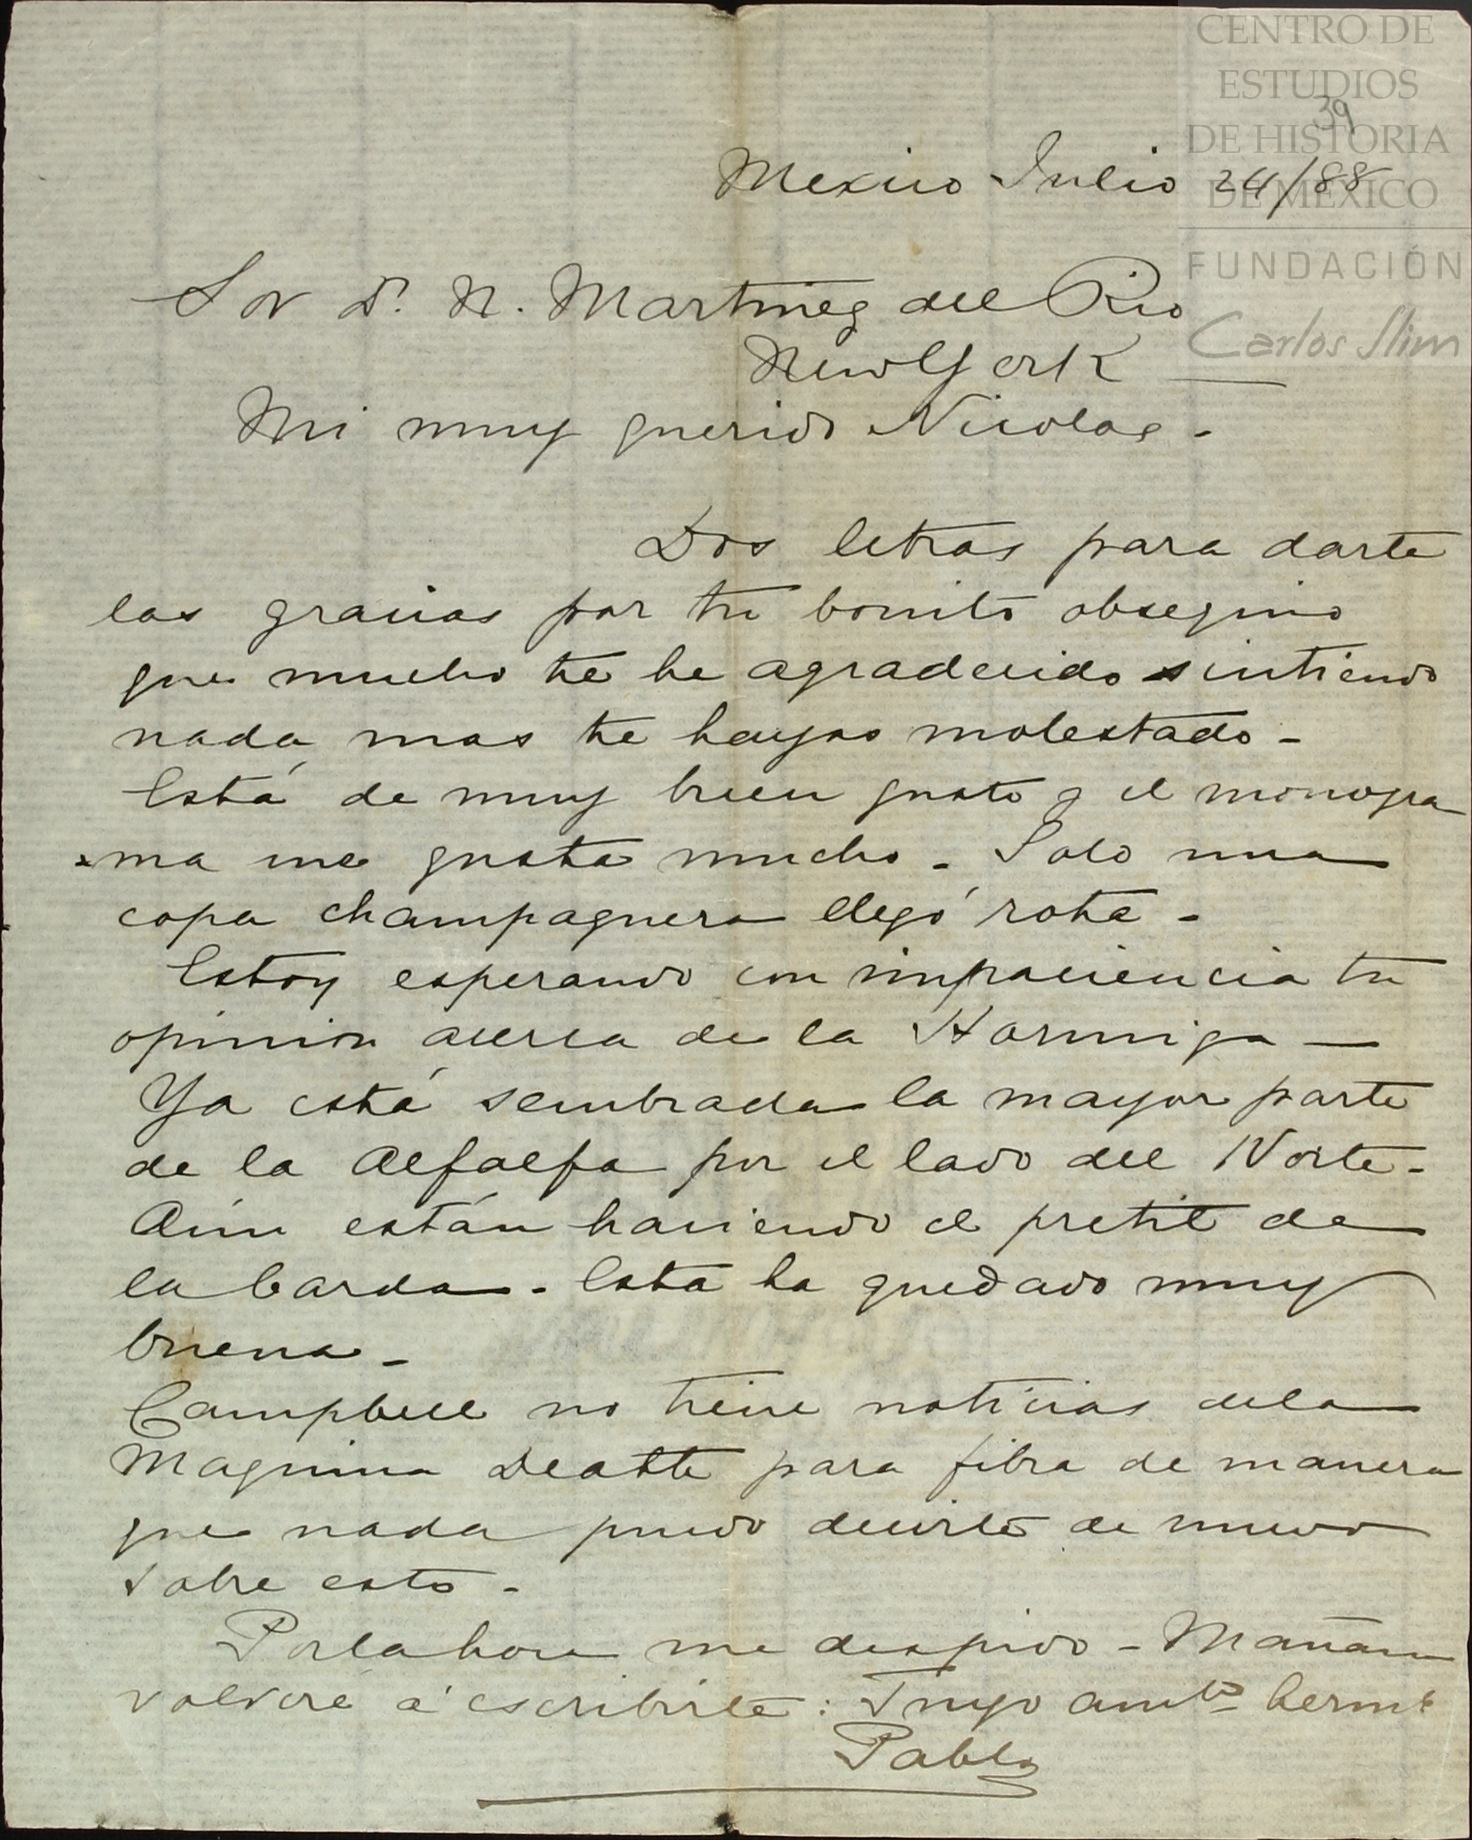 CENTRO DE
ESTUDIOS
DE HISTORIA
DE MÉXICO
FUNDACIÓN
Carlos Slim
39
Mexico Julio 24/88
Sor D. N. Martinez del Rio
New York
Mi muy querido Nicolas -
Dos letras para darte
las gracias por tu bonito obsequio
que mucho te he agradecido sintiendo
nada mas te hayas molestado -
Está de muy buen gusto y el monogra
-ma me gusta mucho - Solo una
copa champagnera llegó rota -
Estoy esperando con impaciencia tu
opinion acerca de la Hormiga -
Ya está sembrada la mayor parte
de la Alfalfa por el lado del Norte -
Aún están haciendo el pretil de
la barda - Esta ha quedado muy
buena -
Campbell no tiene noticias dela
Maquina Death para fibra de manera
que nada puedo decirte de nuevo
sobre esto -
Porlahora me despido - Mañana
volveré á escribirte: Tuyo amto hermo
Pablo